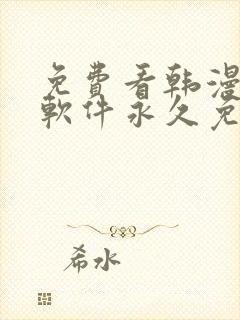 免費看韩漫
軟件永久免
希水